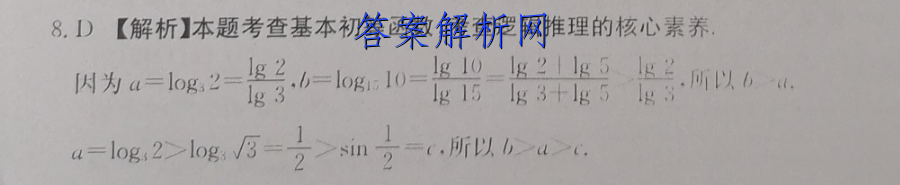 8. D 【解析】本题考查基本初等函数,考查逻辑推理的核心素养.
答案解析网
因为 a=log₃2=lg 2/lg 3,b=log₁₅10=lg 10/lg 15=(lg 2+lg 5)/(lg 3+lg 5)>lg 2/lg 3,所以 b>a.
a=log₃2>log₃√3=1/2>sin 1/2=c,所以 b>a>c.